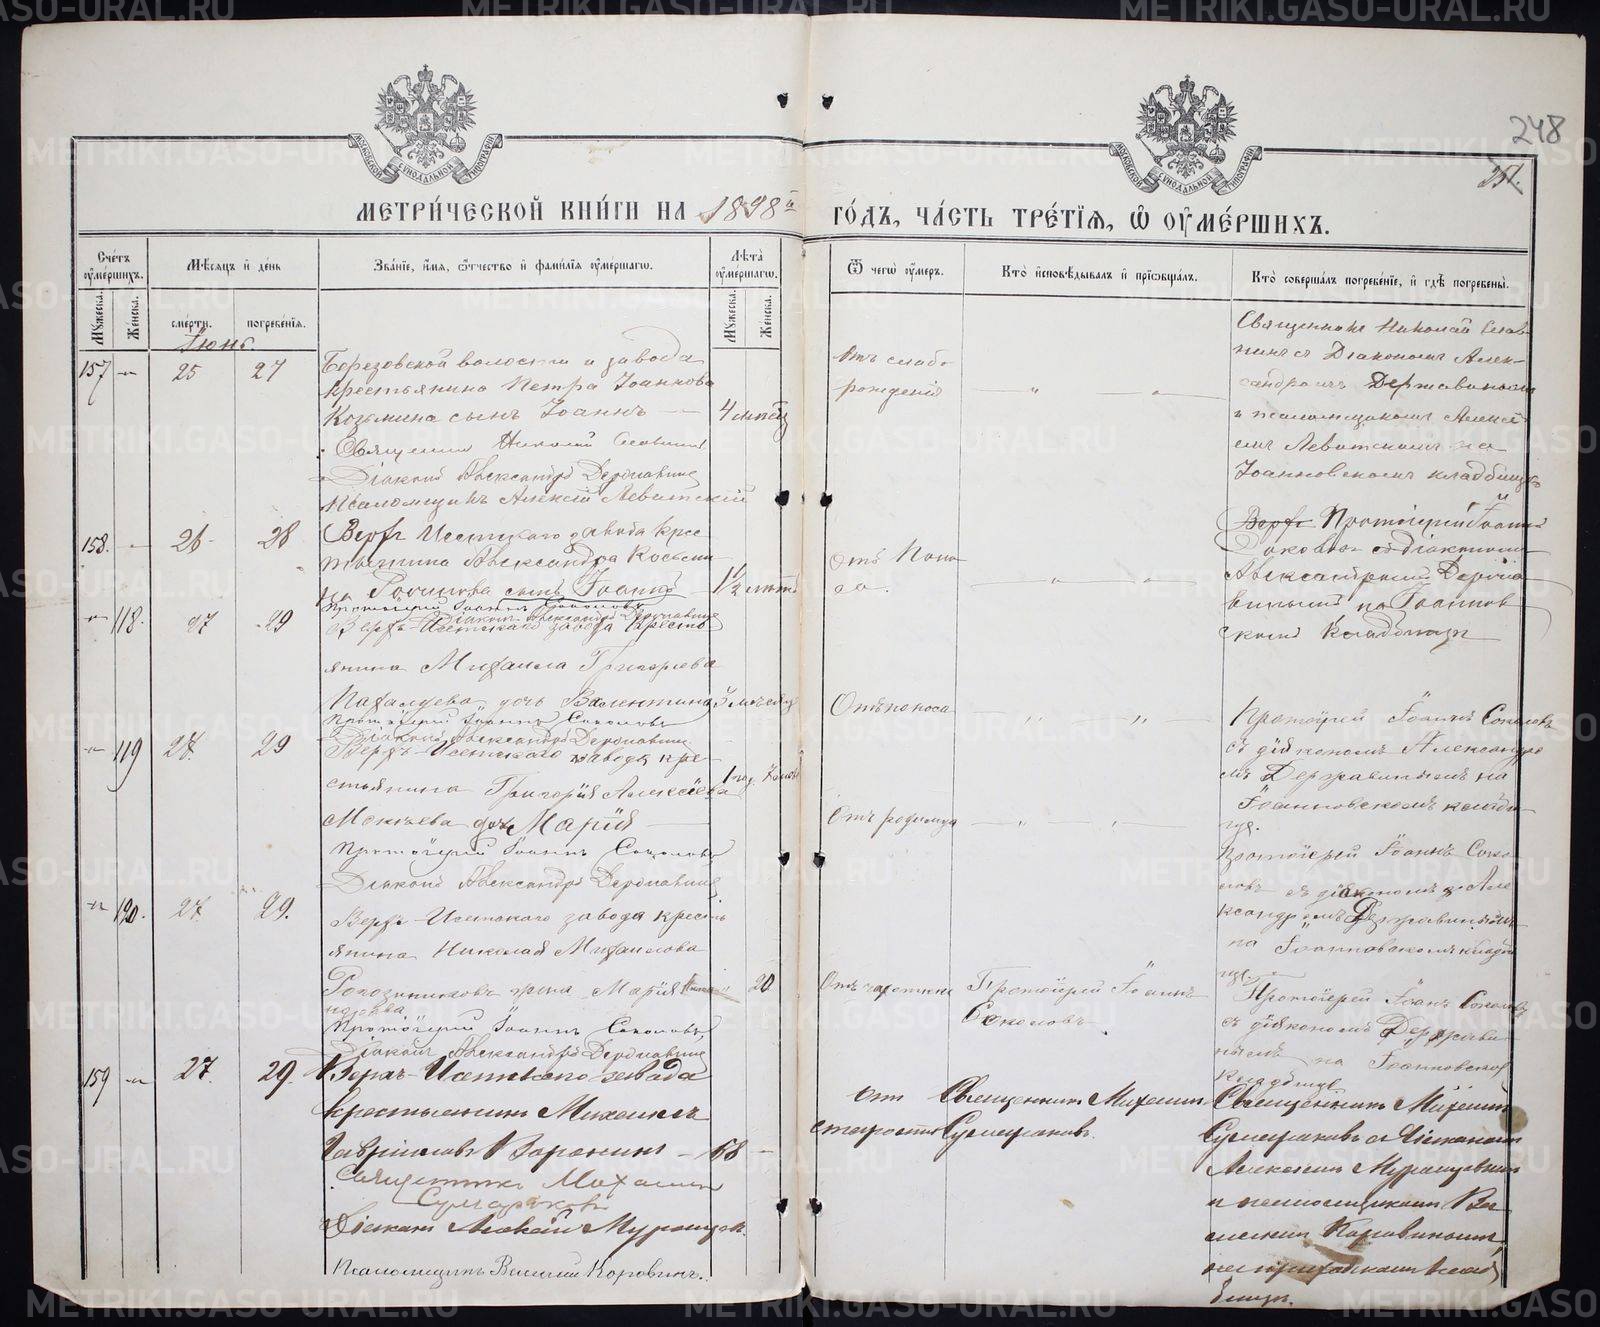 248
251.
МОСКОВСКОЙ СИНОДАЛЬНОЙ ТИПОГРАФІИ
МОСКОВСКОЙ СИНОДАЛЬНОЙ ТИПОГРАФІИ
МЕТРИ́ЧЕСКОЙ КНИ́ГИ НА 1898й ГО́ДЪ, ЧА́СТЬ ТРЕ́ТІѦ, Ѽ ОУМЕ́РШИХЪ.
Сче́тъ оуме́ршихъ.
Мужеска.
Женска.
Мѣсѧцъ и де́нь
сме́рти.
погребе́нїѧ.
Зва́нїе, и́мѧ, ѻ́тчество и фами́лїѧ оуме́ршагѡ.
Лѣ́та оуме́ршагѡ.
Мужеска.
Женска.
Ѿ чегѡ̀ оу́меръ.
Кто̀ исповѣ́дывалъ и прїѻбща́лъ.
Кто̀ соверша́лъ погребе́нїе, и гдѣ̀ погребены̀.
Іюнь.
157 -„- 25 27
Березовской волости и завода
крестьянина Петра Іоаннова
Козьмина сынъ Іоаннъ —
4 мѣсяц
Священник Николай
Діаконъ Александръ Державинъ
Псаломщикъ Алексій Левитскій
Отъ слабо
рожденія
„ „
Священникъ Николай
съ Діакономъ Алек-
сандромъ Державинымъ
и псаломщикомъ Алексѣ-
емъ Левитскимъ на
Іоанновскомъ кладбищѣ
158. — 26 28
Верх Исетскаго завода крес
тьянина Александра Косьми
на сынъ Іоаннъ
1½ лѣтъ
Протоіерей Іоаннъ Соколовъ
Діаконъ Александръ Державинъ
Отъ Поно
са.
„ „
Верх Протоіерей Іоаннъ
Соколовъ съ Діакономъ
Александромъ Держа
винымъ на Іоаннов
скомъ Кладбищѣ
-„- 118. 27 29
Верхъ-Исетскаго завода кресть
янина Михаила Григорьева
дочь Валентина 3 мѣсяц
Протоіерей Іоаннъ Соколовъ
Діаконъ Александръ Державинъ
Отъ поноса
„ „
Протоіерей Іоаннъ Соколовъ
съ діакономъ Александро
мъ Державинымъ на
Іоанновскомъ кладби
щѣ.
-„- 119 27. 29
Верхъ-Исетскаго завода кре-
стьянина Григорія Алексѣева
Мокѣева дочь Марія —
1 год. 7
Протоіерей Іоаннъ Соколовъ
Діаконъ Александръ Державинъ
Отъ родимца
„ „
Протоіерей Іоаннъ Соко
ловъ съ діакономъ Але
ксандромъ Державинымъ
на Іоанновскомъ кладби
щѣ.
-„- 120. 27. 29.
Верхъ-Исетскаго завода кресть
янина Николая Михаилова
жена Марія
20
Протоіерей Іоаннъ Соколовъ
Діаконъ Александръ Державинъ
Отъ чахотки
Протоіерей Іоаннъ
Соколовъ.
Протоіерей Іоаннъ Соколовъ
съ діакономъ Держави
нымъ на Іоанновском
Кладбищѣ
159 -„- 27. 29.
Верхъ-Исетскаго завода
крестьянинъ Михаилъ
Гавріиловъ Воронинъ — 68 —
Священникъ Михаилъ
Сумароковъ
Діаконъ Алексій
Псаломщикъ Василій Коровинъ.
отъ
старости
Священникъ Михаилъ
Сумароковъ.
Священникъ Михаилъ
Сумароковъ съ Діакономъ
Алексѣемъ
и псаломщикомъ Ва
силіемъ Коровинымъ
на приходскомъ клад
бищѣ.
METRIKI.GASO-URAL.RU